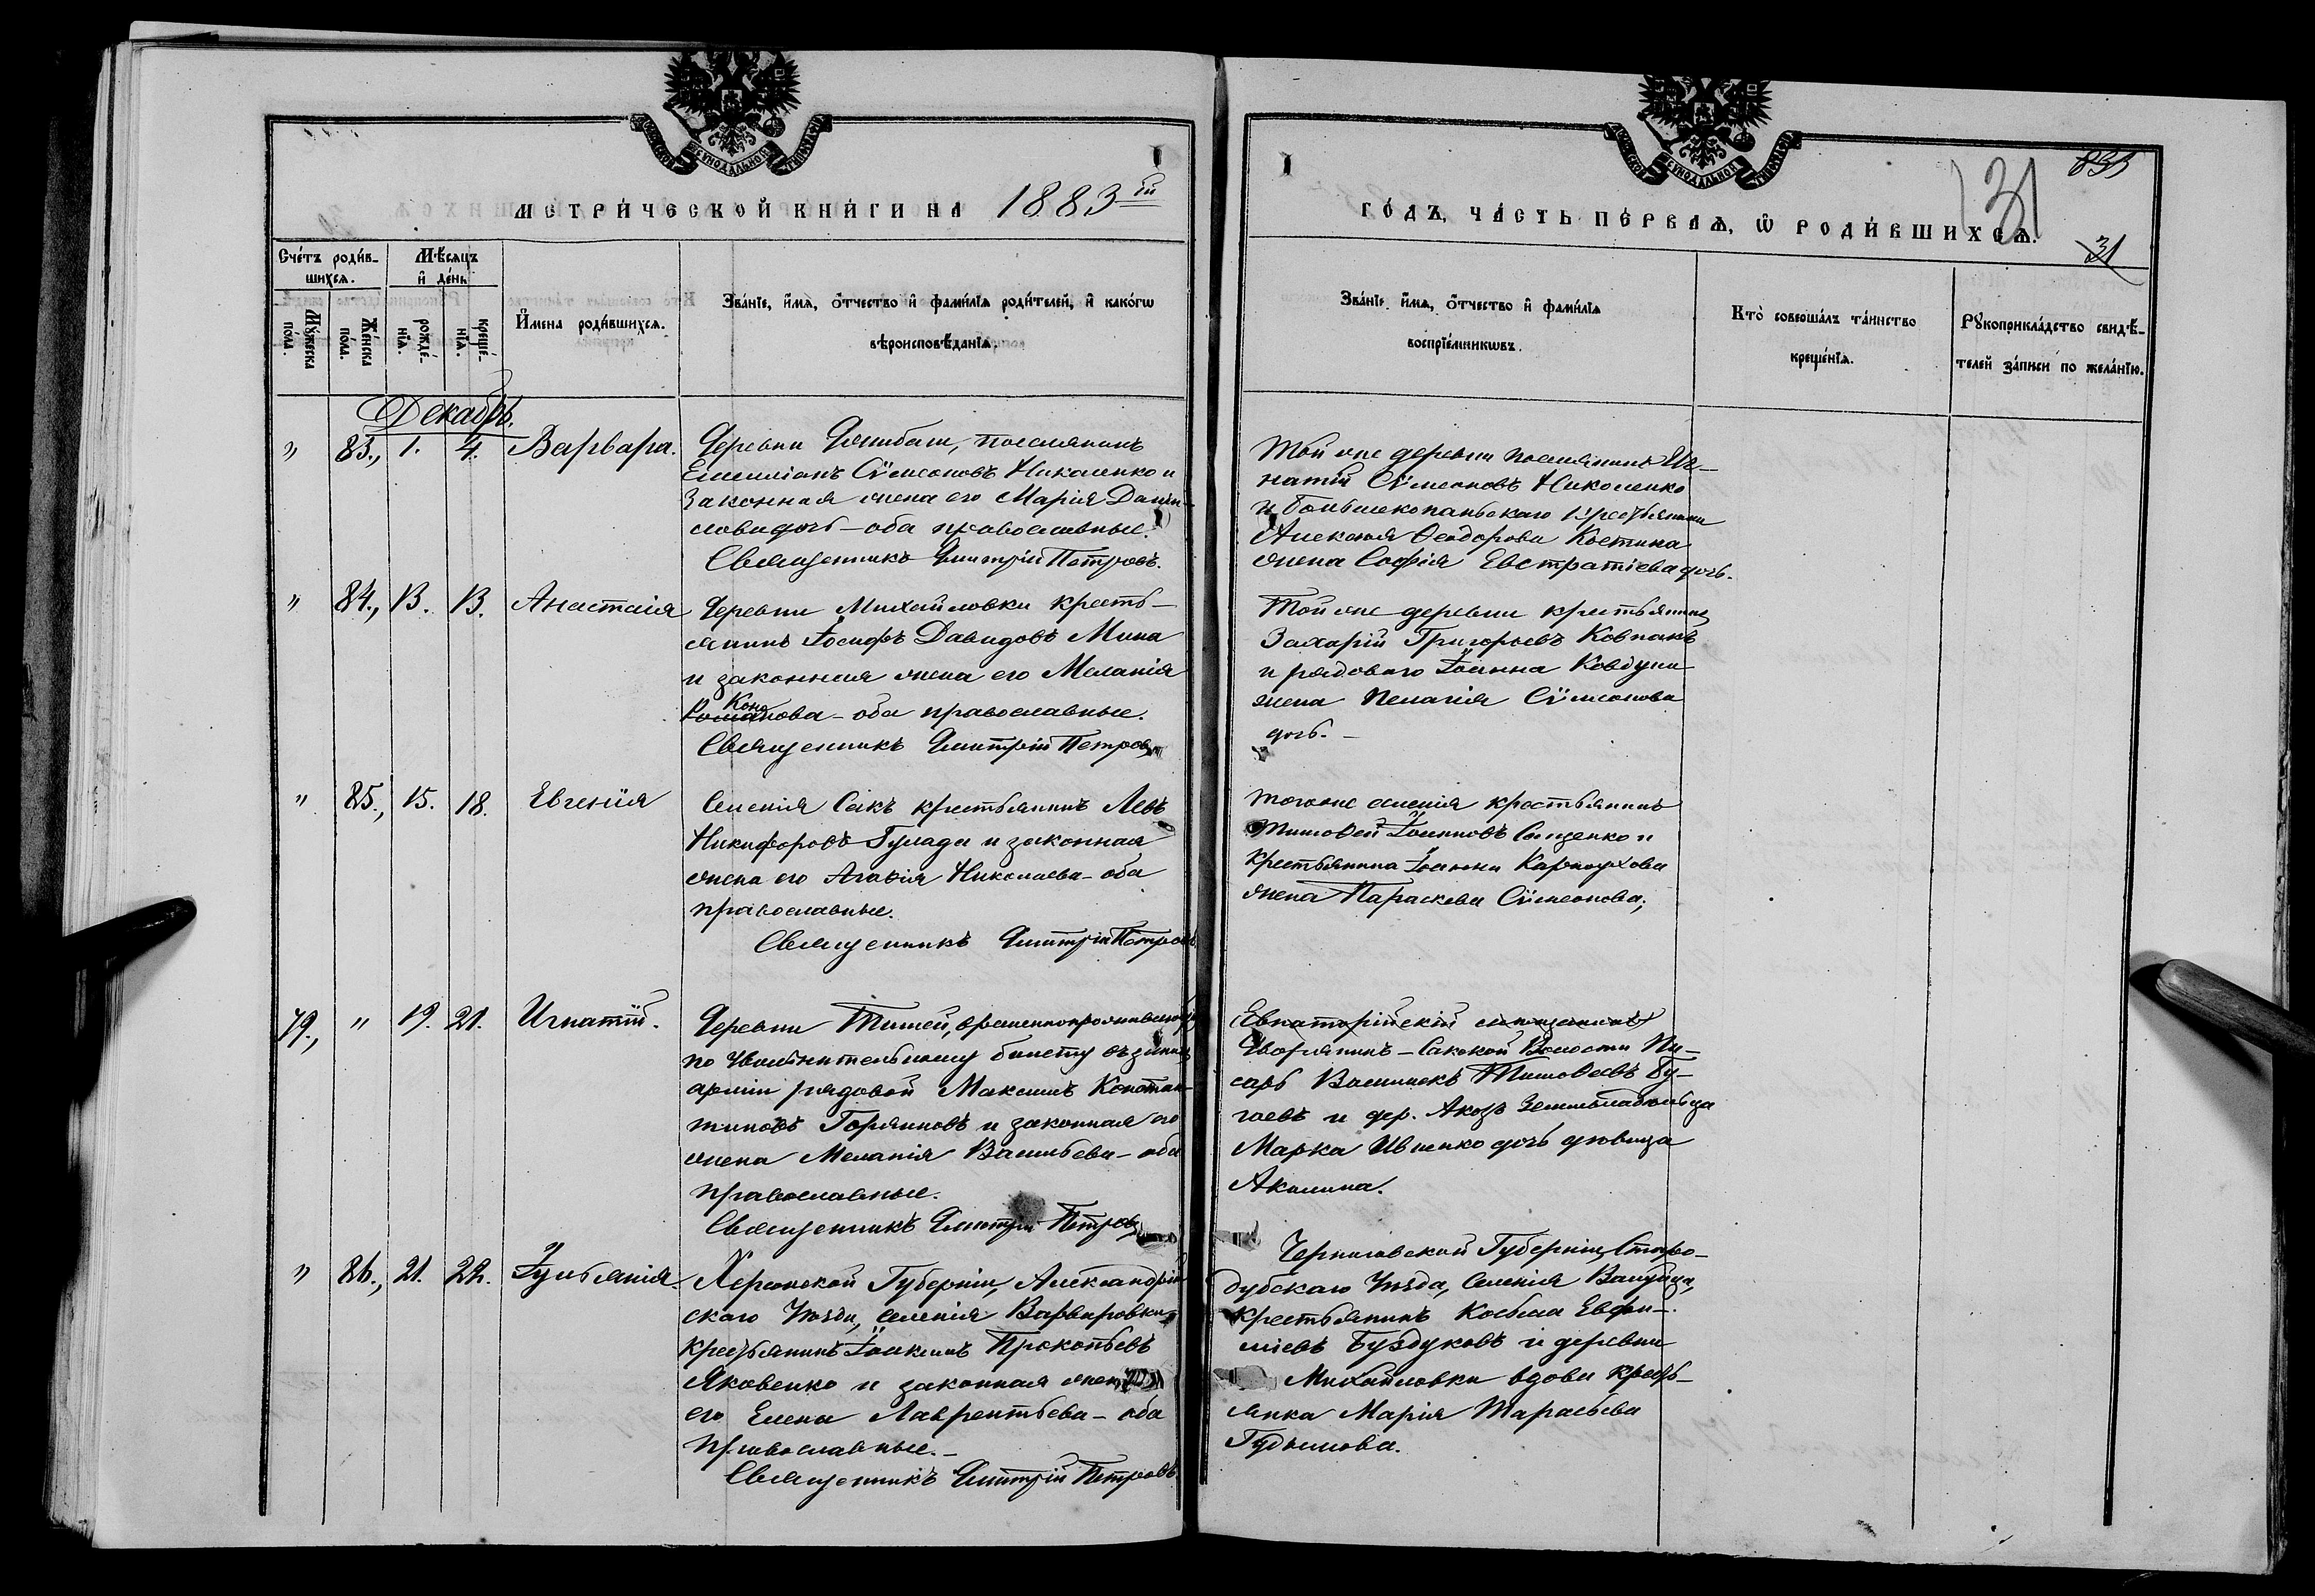 МЕТРИ́ЧЕСКОЙ КНИ́ГИ НА 1883й
Сче́тъ роди́в-
шихся.
Мѣ́сяцъ
и҆ де́нь
Мꙋ́жеска
по́ла.
Же́нска
по́ла.
рожде́-
нїя.
креще́-
нїя.
И҆мена роди́вшихся.
Зва́нїе, и҆́мя, ѻ҆́тчество и҆ фами́лїя роди́телей, и҆ како́гѡ
вѣроисповѣ́данїя.
Декабрь.
" 83., 1. 4. Варвара.
Деревни поселянинъ
Емиліанъ Сѵмеоновъ Николенко и
законная жена его Марія Данiи-
лова дочь - оба православные.
Священникъ Димитрій Петровъ.
" 84., 13. 13. Анастасія
Деревни Михайловки кресть-
янинъ Іосифъ Давидовъ Мина
и законная жена его Меланія
Конo
Романова - оба православные.
Священникъ Димитрій Петровъ
" 85., 15. 18. Евгенія
Селенія Сакъ крестьянинъ Левъ
Никифоровъ Гулада и законная
жена его Агафія Николаева - оба
православные.
Священникъ Димитрій Петровъ
79., " 19. 21. Игнатій.
Деревни временнопроживающій
по увольнительному билету въ запасъ
арміи рядовой Максимъ Констан-
тиновъ Горяиновъ и законная его
жена Меланія Васильева - оба
православные.
Священникъ Димитрій Петровъ
" 86., 21. 22. Іуліанія.
Херсонской Губерніи, Александрій-
скаго Уѣзда, селенія Варваровки
крестьянинъ Іоакимъ Прокопьевъ
Яковенко и законная жена
его Елена Лаврентьева - оба
православные. -
Священникъ Димитрій Петровъ.
ГО́ДЪ, ЧА́СТЬ ПЕ́РВАЯ, Ѡ҆ РОДИ́ВШИХСЯ.
31
835
31
Зва́нїе и҆́мя, ѻ҆́тчество и҆ фами́лїя
воспрїе́мникѡвъ.
Кто̀ соверша́лъ та́инство
креще́нїя.
Рꙋкоприкла́дство свидѣ́-
телей за́писи по жела́нїю.
Той же деревни поселянинъ Иг-
натій Сѵмеоновъ Николенко
и Большекопаньскаго крестьянина
Алексѣя Ѳеодорова Костина
жена Софія Евстратіева дочь.
Той же деревни крестьянинъ
Захарій Григорьевъ Ковпакъ
и рядоваго Іоанна Ковдуна
жена Пелагія Сѵмеонова
дочь. -
Того же селенія крестьянинъ
Тимоѳей Іоанновъ Сыщенко и
крестьянина Іоанна Карнаухова
жена Параскева Сѵмеонова;
Евпаторійскій мѣщанинъ
Дворянинъ - Сакской Волости Пи-
сарь Василискъ Тимоѳеевъ Бу-
гаевъ и дер. Акозъ Землевладѣльца
Марка Ивненко дочь дѣвица
Акилина.
Черниговской Губерніи, Старо-
дубскаго Уѣзда, Селенія Валуйца,
крестьянинъ Косьма Евфи-
міевъ Буздуковъ и деревни
Михайловки вдова кресть-
янка Марія Тарасьева
Гудымова.